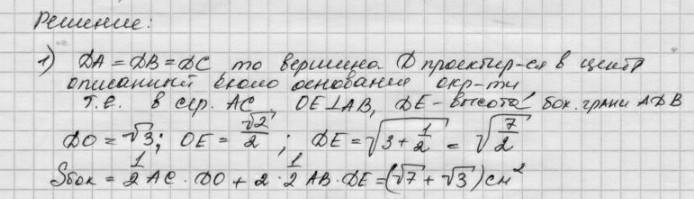 Решение:
1) DA = DB = DC то вершина D проектир-ся в центр
описанной около основания окр-ти
т.е. в сер. AC, OE⊥AB, DE - высота бок. грани ADB
DO = √3; OE = √2/2; DE = √(3 + 1/2) = √(7/2)
Sбок = 1/2 AC · DO + 2 · 1/2 AB · DE = (√7 + √3) см²